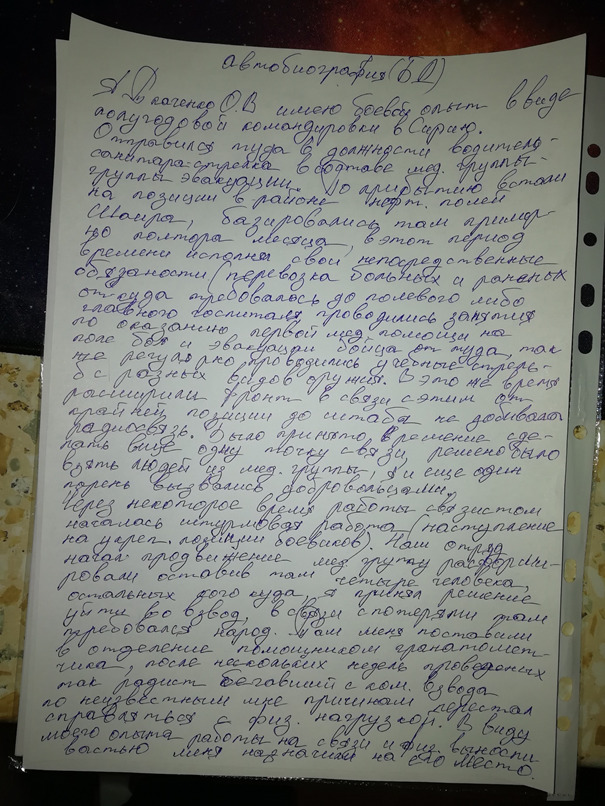 автобиография (Б Д)
Я Ткаченко О.В имею боевой опыт в виде
полугодовой командировки в Сирию.
Отправился туда в должности водитель-
санитара-стрелка в составе мед. группы-
группы эвакуации. По прибытию встали
на позиции в районе нефт. полей
Шаира, базировались там пример-
но полтора месяца, в этот период
времени исполнял свои непосредственные
обязаности (перевозка больных и раненых
откуда требовалось до полевого либо
главного госпиталя, проводились занятия
по оказанию первой мед. помощи на
поле боя и эвакуации бойца оттуда, так
же регулярно проводились учебные стрель-
бы с разных видов оружия. В это же время
расширили фронт в связи с этим от
крайней позиции до штаба не добивала
радиосвязь. Было принято решение сде-
лать еще одну точку связи, решено было
взять людей из мед. группы, я и еще один
парень вызвались добровольцами.
Через некоторое время работы связистом
началась штурмовая работа (наступление
на укреп. позиции боевиков). Наш отряд
начал продвижение мед группу расформи-
ровали оставив там четыре человека,
остальных кого куда, я принял решение
уйти во взвод, в связи с потерями там
требовался народ. Там меня поставили
в отделение помощником гранатомет-
чика, после нескольких недель проведеных
так радист бегавший с ком. взвода
по неизвестным мне причинам перестал
справляться с физ. нагрузкой. В виду
моего опыта работы на связи и физ. выносли
востью меня назначили на его место.